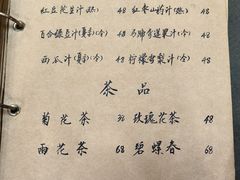 红豆花生汁(热) 48 红枣山药汁(热) 48
百合绿豆汁(夏季)(冷) 48 马蹄香蓮果汁(冷) 48
西瓜汁(夏季)(冷) 48 柠檬雪梨汁(冷) 48
茶品
菊花茶 38 玫瑰花茶 48
雨花茶 68 碧螺春 68